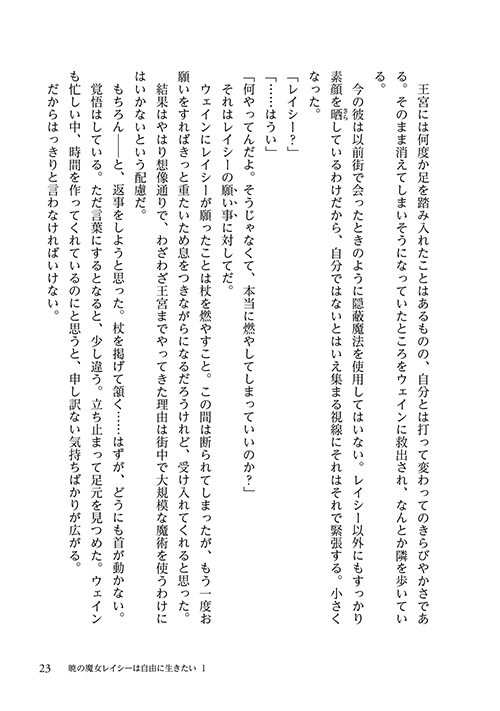 王宮には何度か足を踏み入れたことはあるものの、自分とは打って変わってのきらびやかさであ
る。そのまま消えてしまいそうになっていたところをウェインに救出され、なんとか隣を歩いてい
る。
今の彼は以前街で会ったときのように隠蔽魔法を使用してはいない。レイシー以外にもすっかり
素顔を晒しているわけだから、自分ではないとはいえ集まる視線にそれはそれで緊張する。小さく
なった。
「レイシー？」
「……はうい」
「何やってんだよ。そうじゃなくて、本当に燃やしてしまっていいのか？」
それはレイシーの願い事に対してだ。
ウェインにレイシーが願ったことは杖を燃やすこと。この間は断られてしまったが、もう一度お
願いをすればきっと重たいため息をつきながらになるだろうけれど、受け入れてくれると思った。
結果はやはり想像通りで、わざわざ王宮までやってきた理由は街中で大規模な魔術を使うわけに
はいかないという配慮だ。
もちろん――と、返事をしようと思った。杖を掲げて頷く……はずが、どうにも首が動かない。
覚悟はしている。ただ言葉にするとなると、少し違う。立ち止まって足元を見つめた。ウェイン
も忙しい中、時間を作ってくれているのにと思うと、申し訳ない気持ちばかりが広がる。
だからはっきりと言わなければいけない。
23 暁の魔女レイシーは自由に生きたい 1